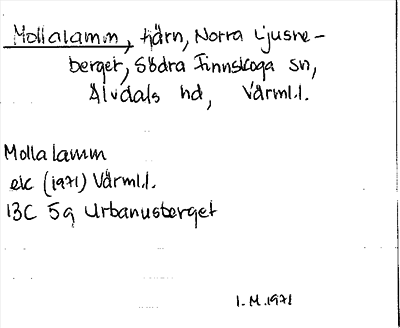 Mollalamm, tjärn, Norra Ljusne-
berget, Södra Finnskoga sn,
Älvdals hd, Värml.l.
Mollalamm
ek (1971) Värml.l.
13C 5g Urbanusberget
I.M.1971